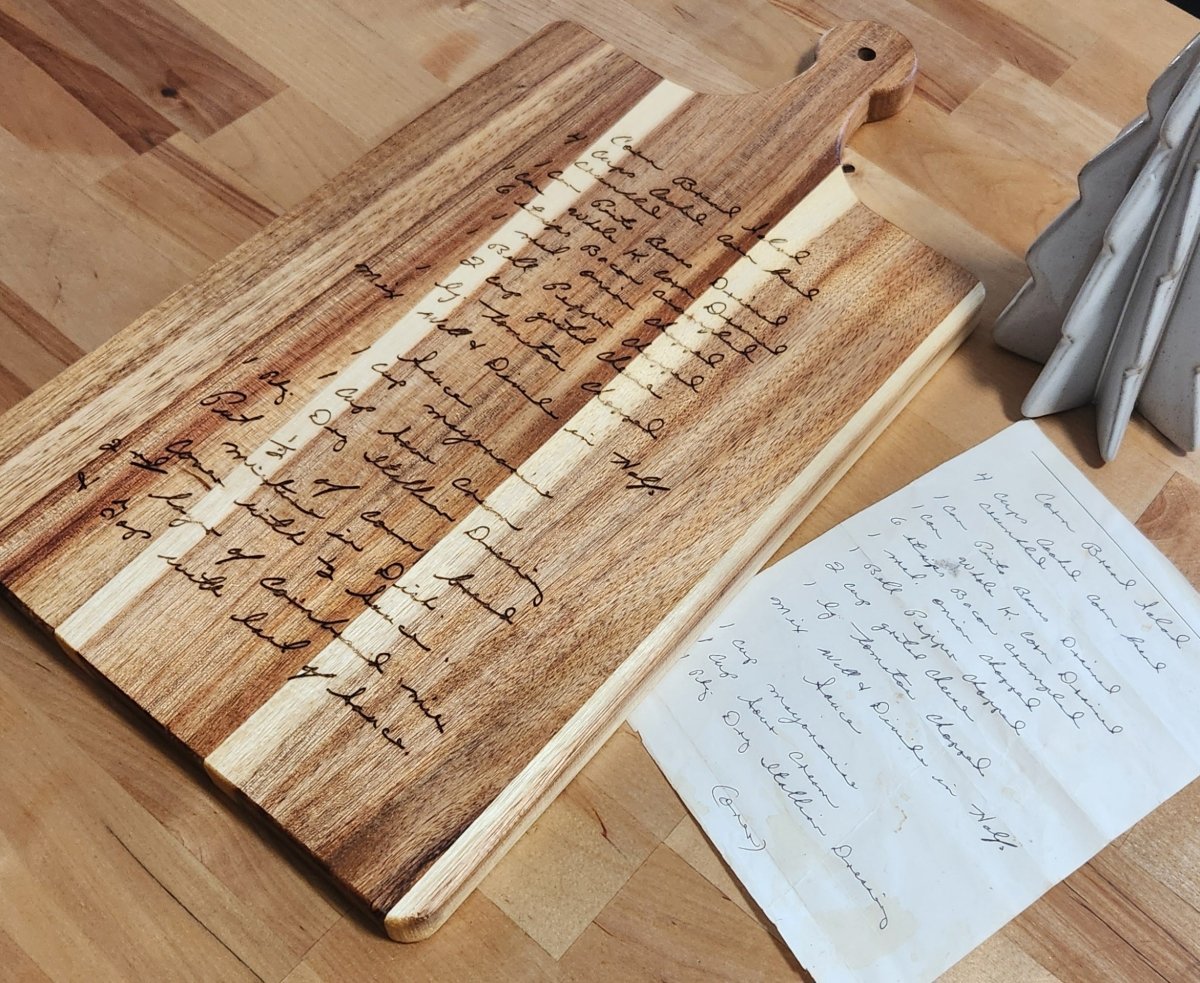 Corn Bread Salad
4 cups cooked corn bread
crumbled
1 can Pinto Beans Drained
1 can Whole K. corn Drained
6 strips Bacon crumbled
1 med onion chopped
1 Bell Pepper chopped
2 cup grated cheese
1 lg tomatoe chopped
Mix Well & Divide in Half.
Sauce
1 cup mayonnaise
1 cup sour cream
1 pkg Dry Itallian Dressing
Put 1/2 of corn bread
mixture in Dish.
Cover with 1/2 sauce.
2 nd layer of Cornbread mix
& top with last of sauce.
Corn Bread Salad
4 cups cooked corn bread
crumbled
1 can Pinto Beans Drained
1 can Whole K. corn Drained
6 strips Bacon crumbled
1 med onion chopped
1 Bell Pepper chopped
2 cup grated cheese
1 lg tomatoe chopped
Mix Well & Divide in Half.
Sauce
1 cup mayonnaise
1 cup sour cream
1 pkg Dry Itallian Dressing
(over)